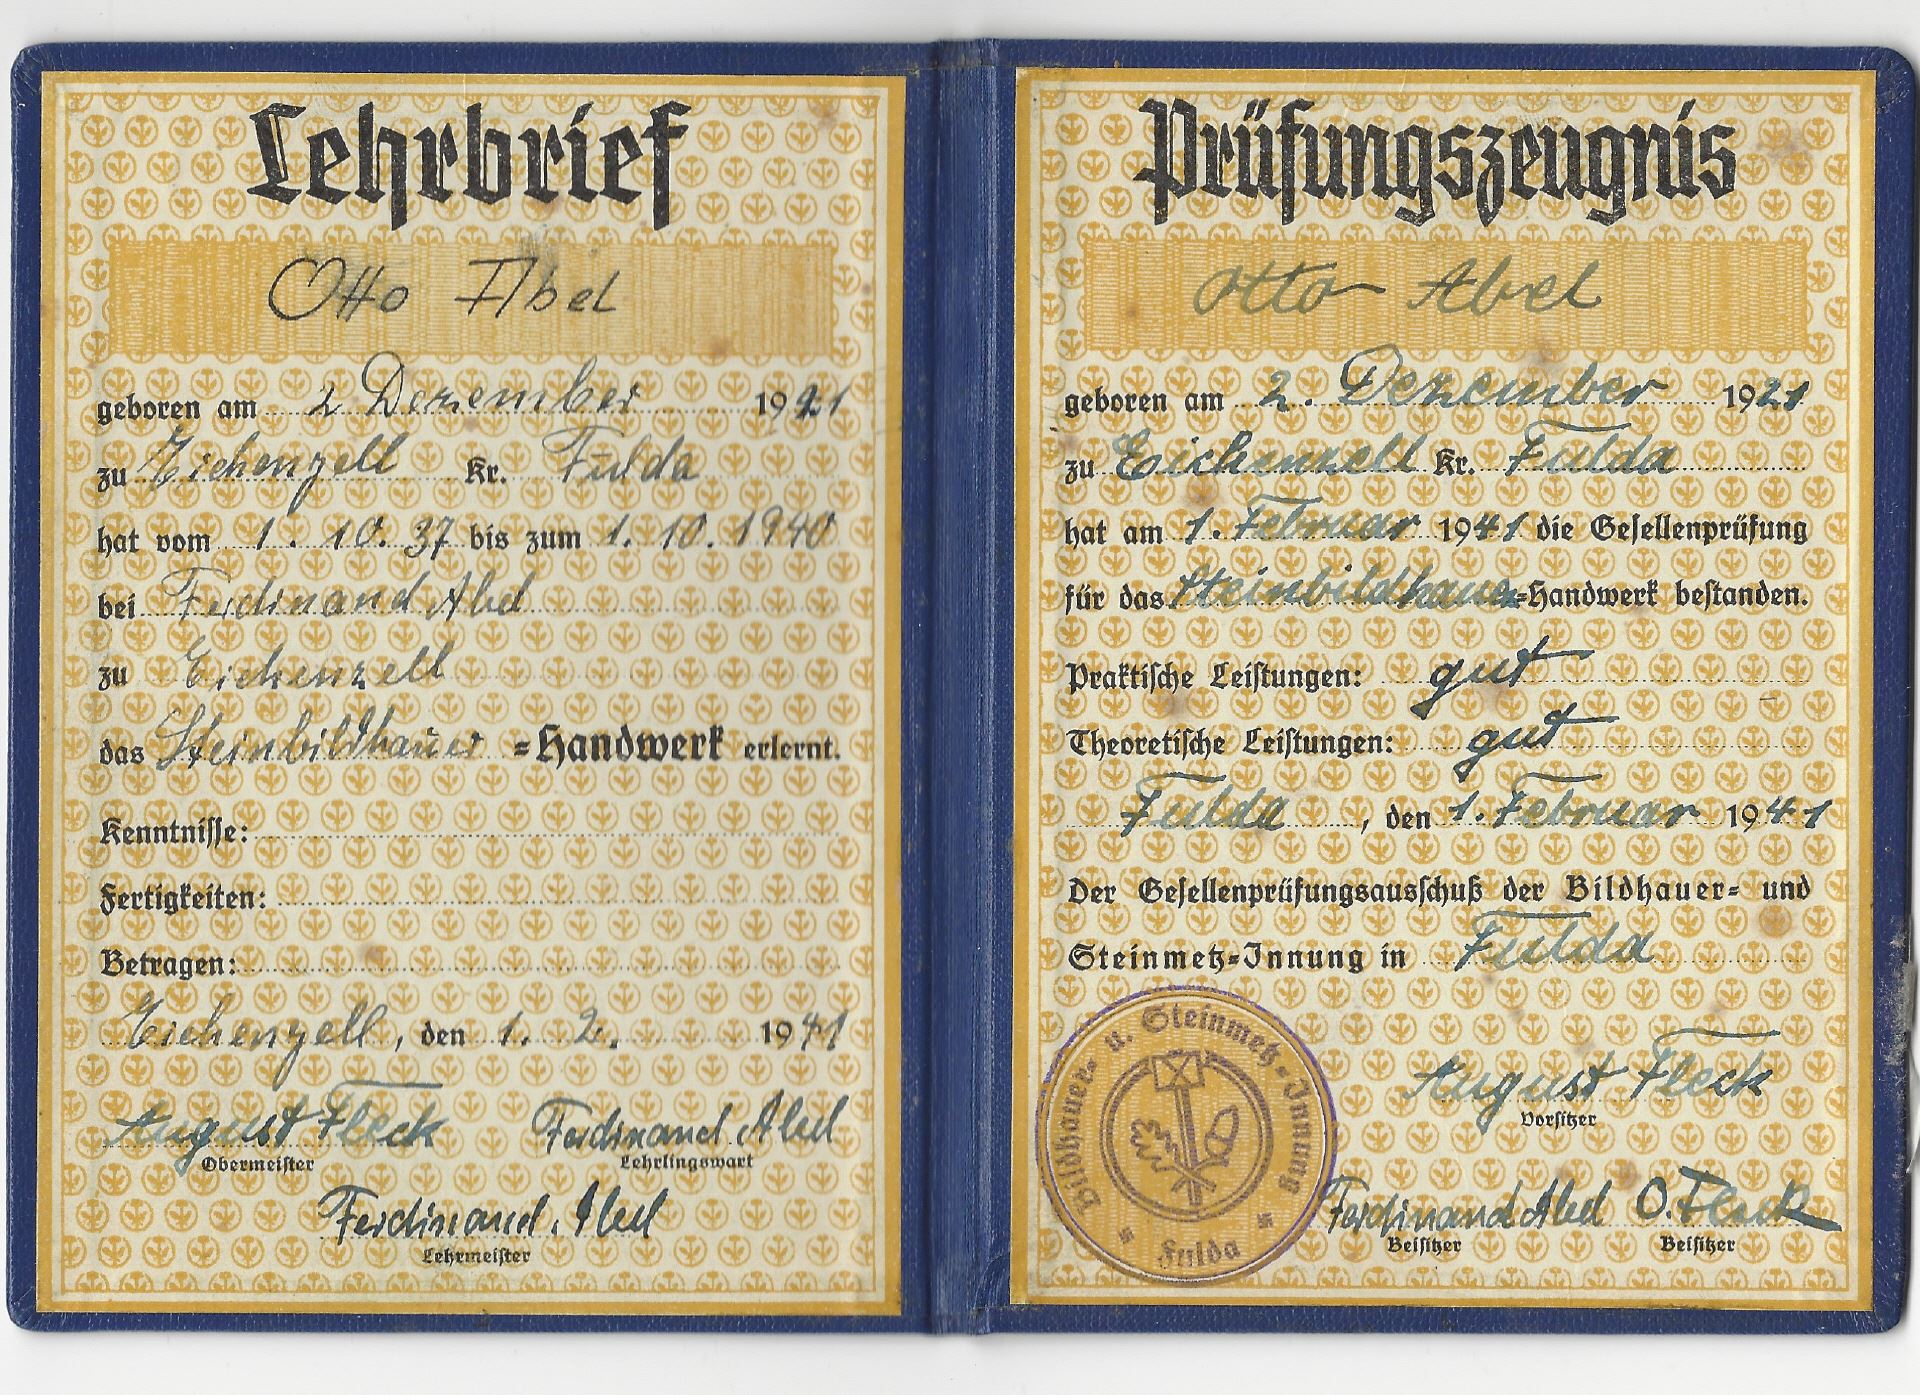 Lehrbrief
Otto Abel
geboren am 2 Dezember 1921
zu Eichenzell Kr. Fulda
hat vom 1. 10. 37 bis zum 1. 10. 1940
bei Ferdinand Abel
zu Eichenzell
das Steinbildhauer =Handwerk erlernt.
Kenntnisse:
Fertigkeiten:
Betragen:
Eichenzell, den 1. 2. 1941
August Fleck Ferdinand Abel
Obermeister Lehrlingswart
Ferdinand Abel
Lehrmeister
Prüfungszeugnis
Otto Abel
geboren am 2. Dezember 1921
zu Eichenzell Kr. Fulda
hat am 1. Februar 1941 die Gesellenprüfung
für das Steinbildhauer=Handwerk bestanden.
Praktische Leistungen: gut
Theoretische Leistungen: gut
Fulda, den 1. Februar 1941
Der Gesellenprüfungsausschuß der Bildhauer= und
Steinmetz=Innung in Fulda
Bildhauer- u. Steinmetz-Innung
Fulda
August Fleck
Vorsitzer
Ferdinand Abel O. Fleck
Beisitzer Beisitzer